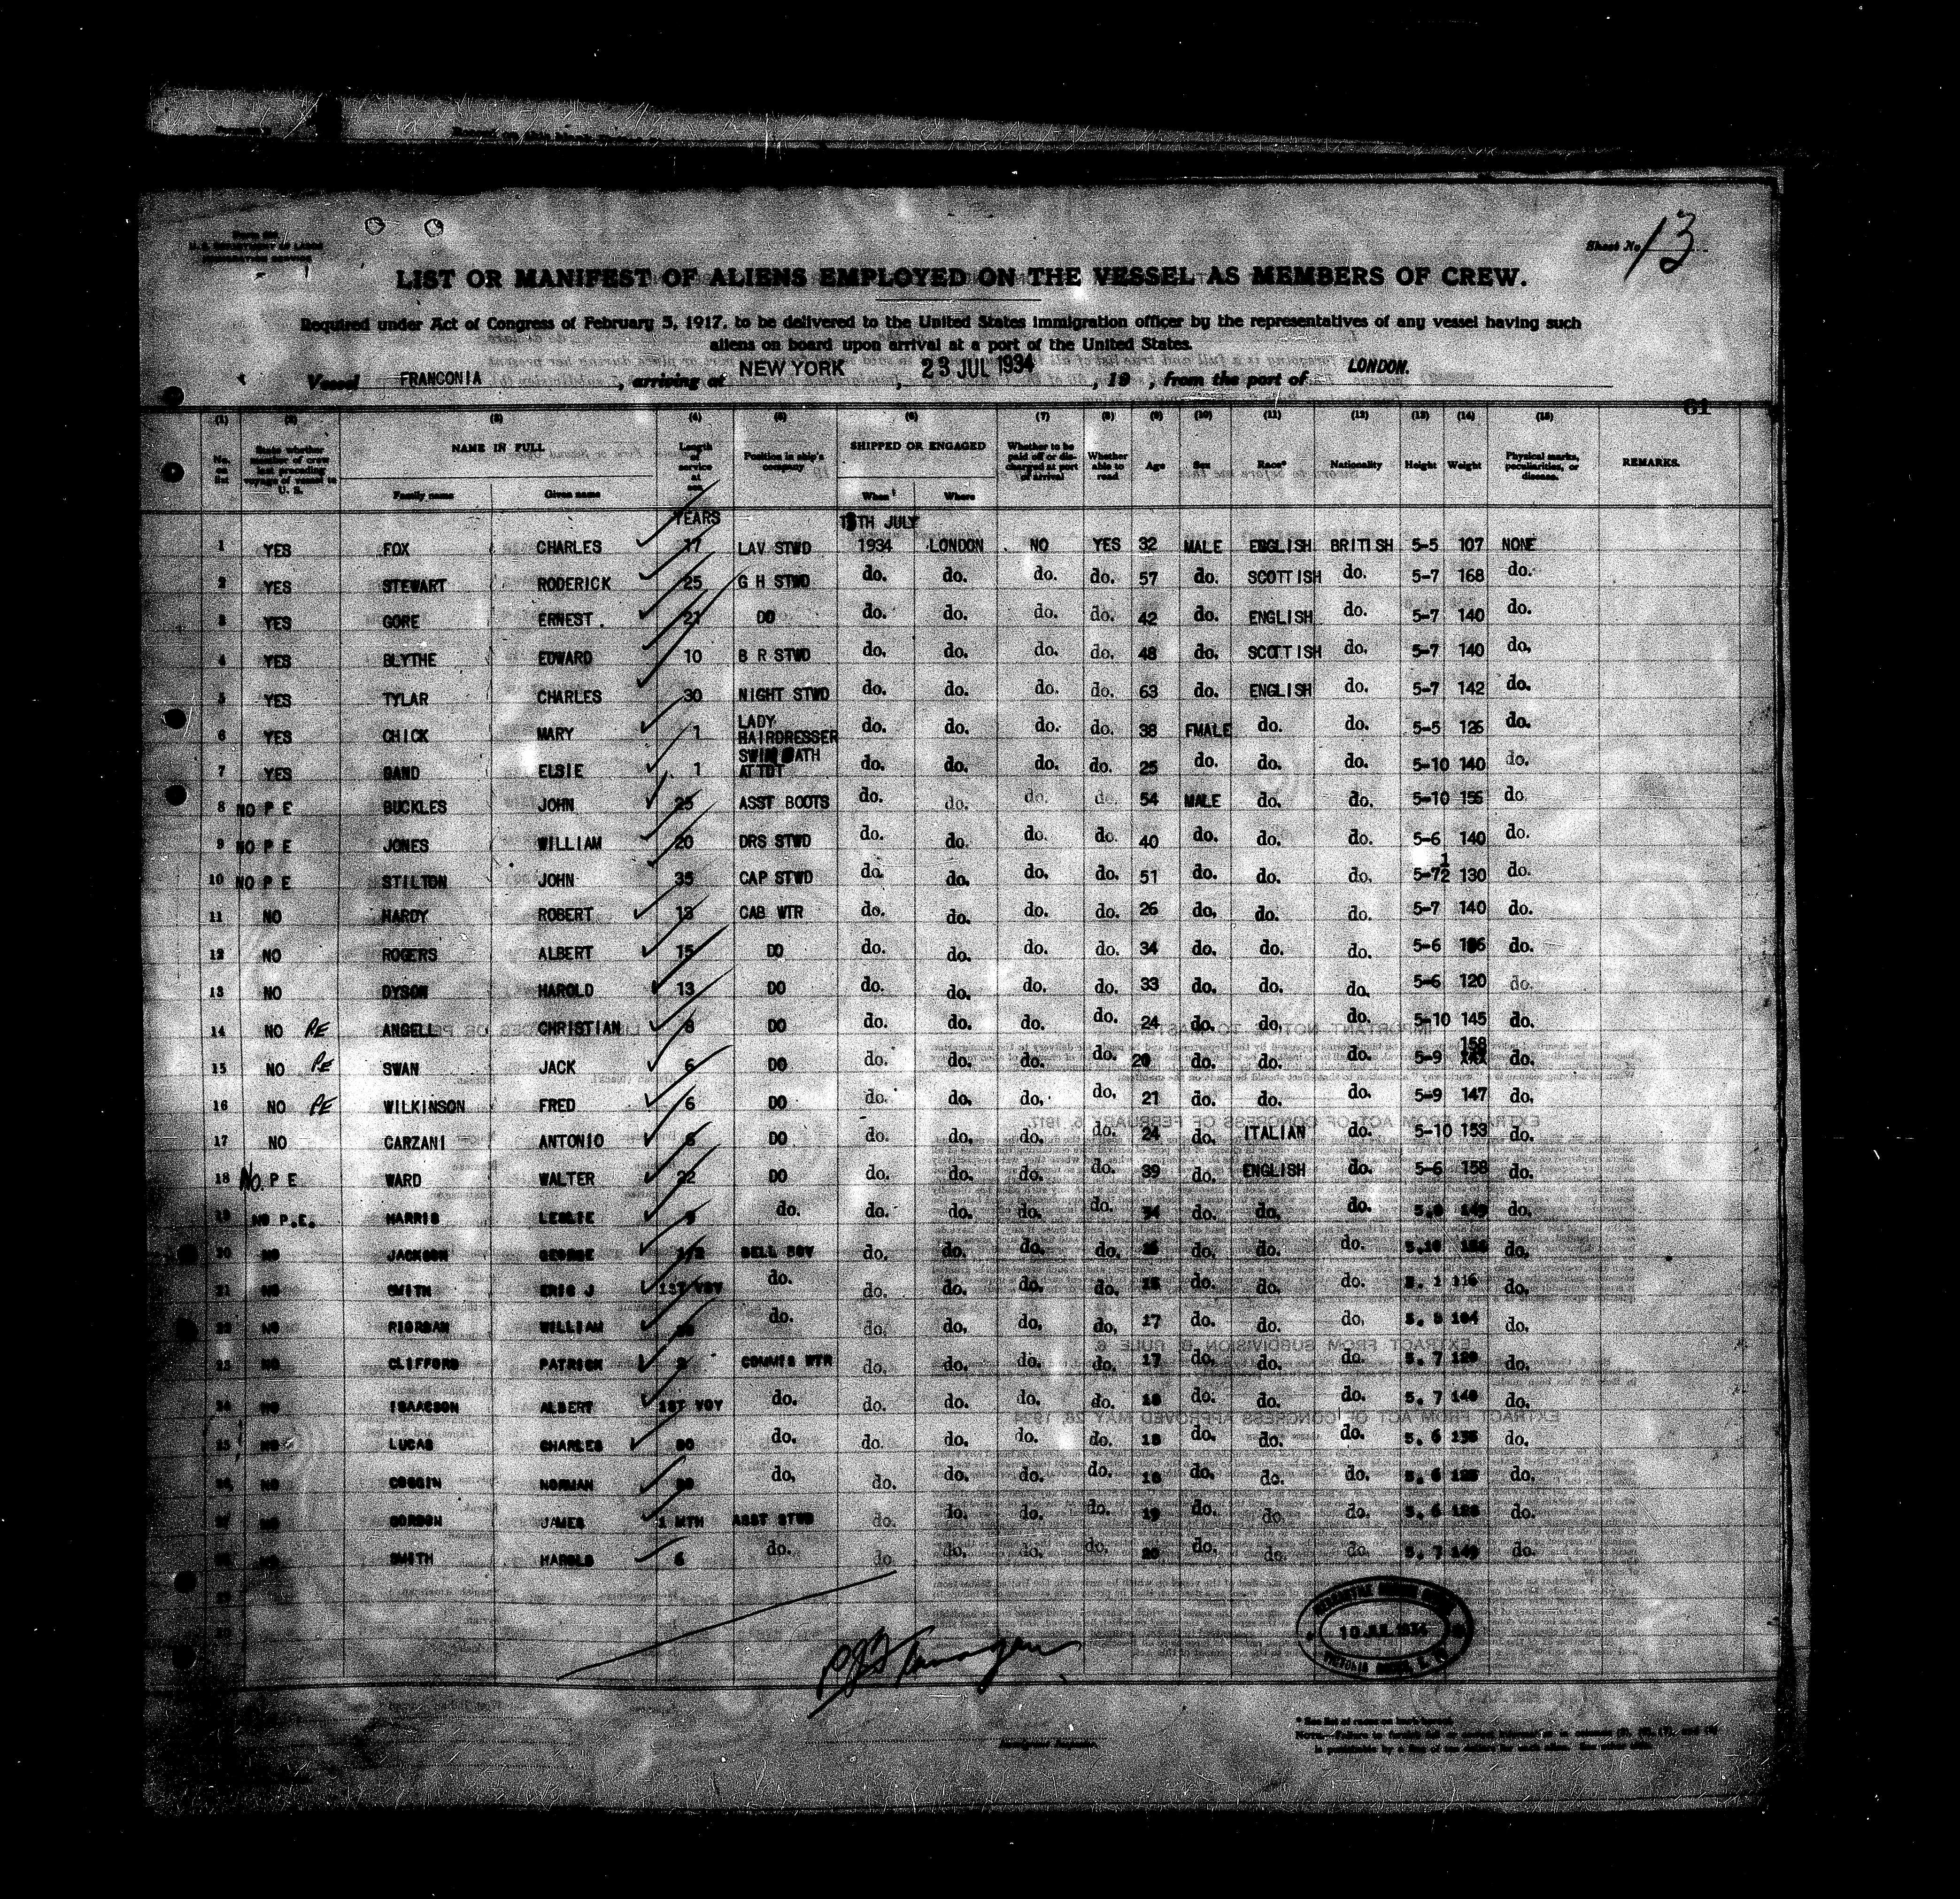 Sheet No. 13
U. S. DEPARTMENT OF LABOR
IMMIGRATION SERVICE
LIST OR MANIFEST OF ALIENS EMPLOYED ON THE VESSEL AS MEMBERS OF CREW.
Required under Act of Congress of February 5, 1917, to be delivered to the United States immigration officer by the representatives of any vessel having such
aliens on board upon arrival at a port of the United States.
Vessel FRANCONIA, arriving at NEW YORK, 23 JUL 1934, 19 , from the port of LONDON.
61
(1) (2) (3) (4) (5) (6) (7) (8) (9) (10) (11) (12) (13) (14) (15)
No. on list State whether member of crew last preceding voyage of vessel to U. S. NAME IN FULL Family name Given name Length of service at sea Position in ship's company SHIPPED OR ENGAGED When Where Whether to be paid off or discharged at port of arrival Whether able to read Age Sex Race* Nationality Height Weight Physical marks, peculiarities, or disease. REMARKS.
YEARS TH JULY
1 YES FOX CHARLES 17 LAV STWD 1934 LONDON NO YES 32 MALE ENGLISH BRITISH 5-5 107 NONE
2 YES STEWART RODERICK 25 G H STWD do. do. do. do. 57 do. SCOTTISH do. 5-7 168 do.
3 YES GORE ERNEST. 21 DO do. do. do. do. 42 do. ENGLISH do. 5-7 140 do.
4 YES BLYTHE EDWARD 10 B R STWD do. do. do. do. 48 do. SCOTTISH do. 5-7 140 do.
5 YES TYLAR CHARLES 30 NIGHT STWD do. do. do. do. 63 do. ENGLISH do. 5-7 142 do.
6 YES CHICK MARY 1 LADY HAIRDRESSER do. do. do. do. 38 FMALE do. do. 5-5 126 do.
7 YES BAND ELSIE 1 SWIM BATH ATTDT do. do. do. do. 25 do. do. do. 5-10 140 do.
8 NO P E BUCKLES JOHN 25 ASST BOOTS do. do. do. do. 54 MALE do. do. 5-10 156 do
9 NO P E JONES WILLIAM 20 DRS STWD do. do. do. do. 40 do. do. do. 5-6 140 do.
10 NO P E STILTON JOHN 35 CAP STWD do. do. do. do. 51 do. do. do. 5-7½ 130 do.
11 NO HARDY ROBERT 13 CAB WTR do. do. do. do. 26 do. do. do. 5-7 140 do.
12 NO ROGERS ALBERT 15 DO do. do. do. do. 34 do. do. do. 5-6 do.
13 NO DYSON HAROLD 13 DO do. do. do. do. 33 do. do. do. 5-6 120 do.
14 NO PE ANGELL CHRISTIAN 8 DO do. do. do. do. 24 do. do. do. 5-10 145 do.
15 NO PE SWAN JACK 6 DO do. do. do. do. 20 do. do. do. 5-9 158 do.
16 NO PE WILKINSON FRED 6 DO do. do. do. do. 21 do. do. do. 5-9 147 do.
17 NO CARZANI ANTONIO 6 DO do. do. do. do. 24 do. ITALIAN do. 5-10 153 do.
18 NO. P E WARD WALTER 22 DO do. do. do. do. 39 do. ENGLISH do. 5-6 158 do.
19 NO P.E. HARRIS LESLIE 9 do. do. do. do. do. do. do. do. do.
20 NO JACKSON GEORGE 1/2 BELL BOY do. do. do. do. do. do. do. 5.10 do.
21 NO SMITH ERIC J 1ST VOY do. do. do. do. do. do. do. do. 116 do.
22 NO RIORDAN WILLIAM do. do. do. do. do. 17 do. do. do. 104 do.
23 NO CLIFFORD PATRICK COMMIS WTR do. do. do. do. 17 do. do. do. 5. 7 do.
24 NO ISAACSON ALBERT 1ST VOY do. do. do. do. do. 18 do. do. do. 5. 7 140 do.
25 NO LUCAS CHARLES do. do. do. do. do. 18 do. do. do. 5. 6 do.
26 NO COGGIN NORMAN do. do. do. do. do. 18 do. do. do. 5. 6 do.
27 NO GORDON JAMES 1 MTH ASST STWD do. do. do. do. 19 do. do. do. 5. 6 do.
28 NO SMITH HAROLD 6 do. do. do. do. do. 20 do. do. do. 5. 7 do.
29
30
10 JUL 1934
Immigrant Inspector.
* See list of races on back hereof.